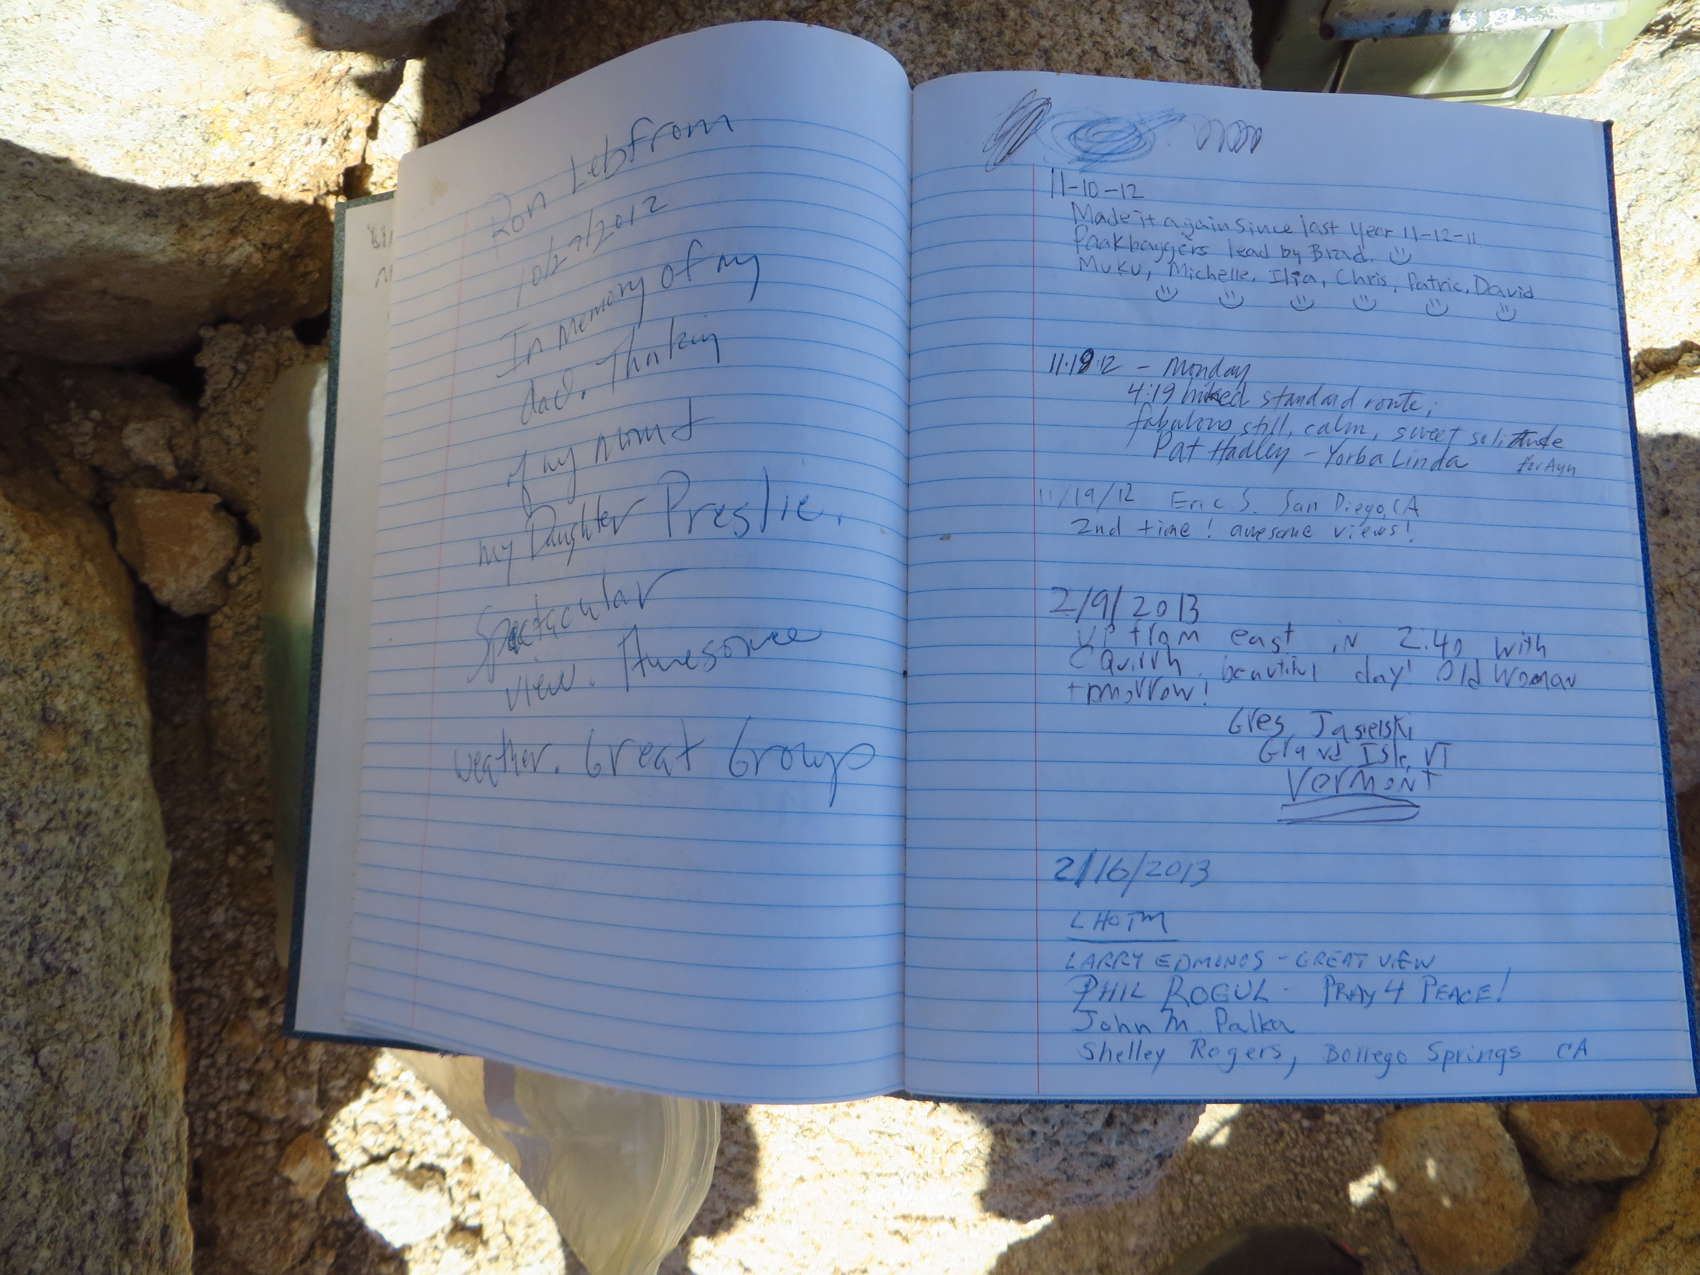 Ron Lebfrom
10/27/2012
In memory of my
dad. Thinking
of my mom &
my Daughter Preslie.
Spectacular
view. Awesome
weather. Great Group
11-10-12
Made it again since last year 11-12-11
Peakbaggers lead by Brad. ☺
Muku, Michelle, Ilia, Chris, Patric, David
11.19.12 - Monday
4:19 hiked standard route;
fabulous still, calm, sweet solitude
Pat Hadley - Yorba Linda for Ayn
11/19/12 Eric S. San Diego, CA
2nd time! awesome views!
2/9/2013
UP from east in 2:40 with
beautiful day! Old Woman
tomorrow!
Greg Jasielski
Grand Isle, VT
VERMONT
2/16/2013
LHOTM
LARRY EDMONDS - GREAT VIEW
PHIL ROGUL - PRAY 4 PEACE!
John M. Palka
Shelley Rogers, Borrego Springs CA